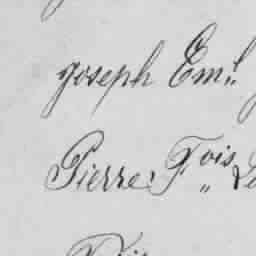 joseph Em.l
Pierre Fois